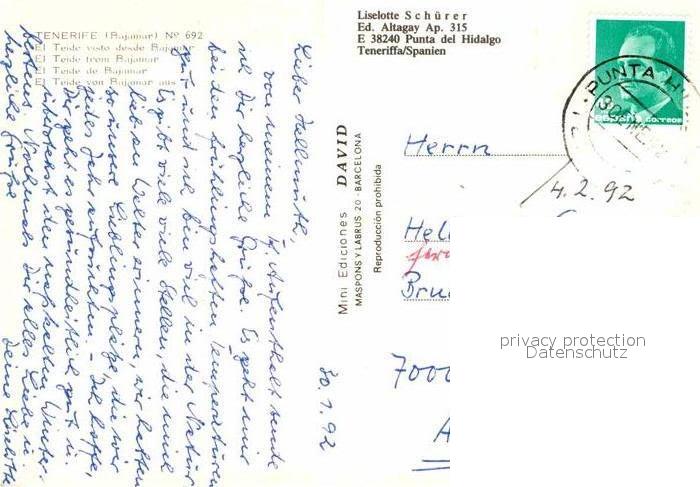 TENERIFE (Bajamar) Nº 692
El Teide visto desde Bajamar
El Teide from Bajamar
El Teide de Bajamar
El Teide von Bajamar aus
Liselotte Schürer
Ed. Altagay Ap. 315
E 38240 Punta del Hidalgo
Teneriffa/Spanien
PUNTA H
ESPAÑA CORREOS
Mini Ediciones DAVID
MASPONS Y LABRUS 20 - BARCELONA
Reproducción prohibida
30.1.92
Lieber Hellmuth,
von meinem Aufenthalt sende
ich Dir herzliche Grüße. Es geht mir
bei den frühlingshaften Temperaturen
gut und ich bin viel in der Natur.
Es gibt viele viele Stellen, die mich
an Walter erinnern, wir hatten
so unsere Lieblingsplätze, die wir
jedes Jahr aufsuchten. - Ich hoffe,
Dir geht es gesundheitlich gut u.
überstehst den naßkalten Winter
bestens. Nochmals Dir alles Liebe u.
herzliche Grüße
Deine Liselotte
Herrn
4.2.92
Hel
Bru
7000
A
privacy protection
Datenschutz